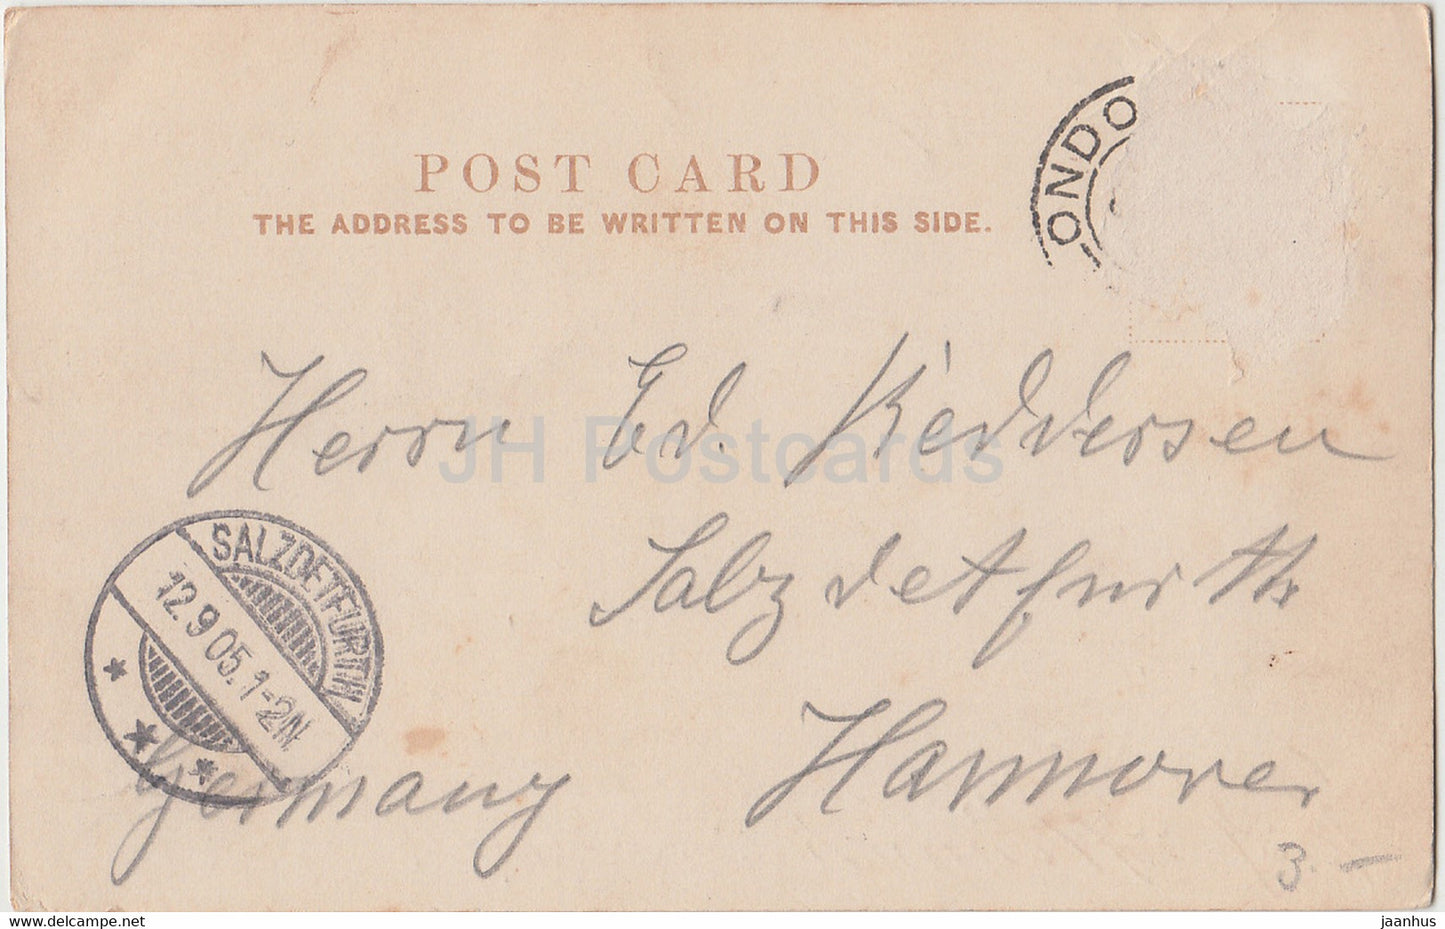 POST CARD
THE ADDRESS TO BE WRITTEN ON THIS SIDE.
ONDO
Herrn Ed. Keddersen
JH Postcards
Salzdetfurth
SALZDETFURTH
12.9.05.1-2N.
Hannover
Germany
3.—
www.delcampe.net
jaanhus